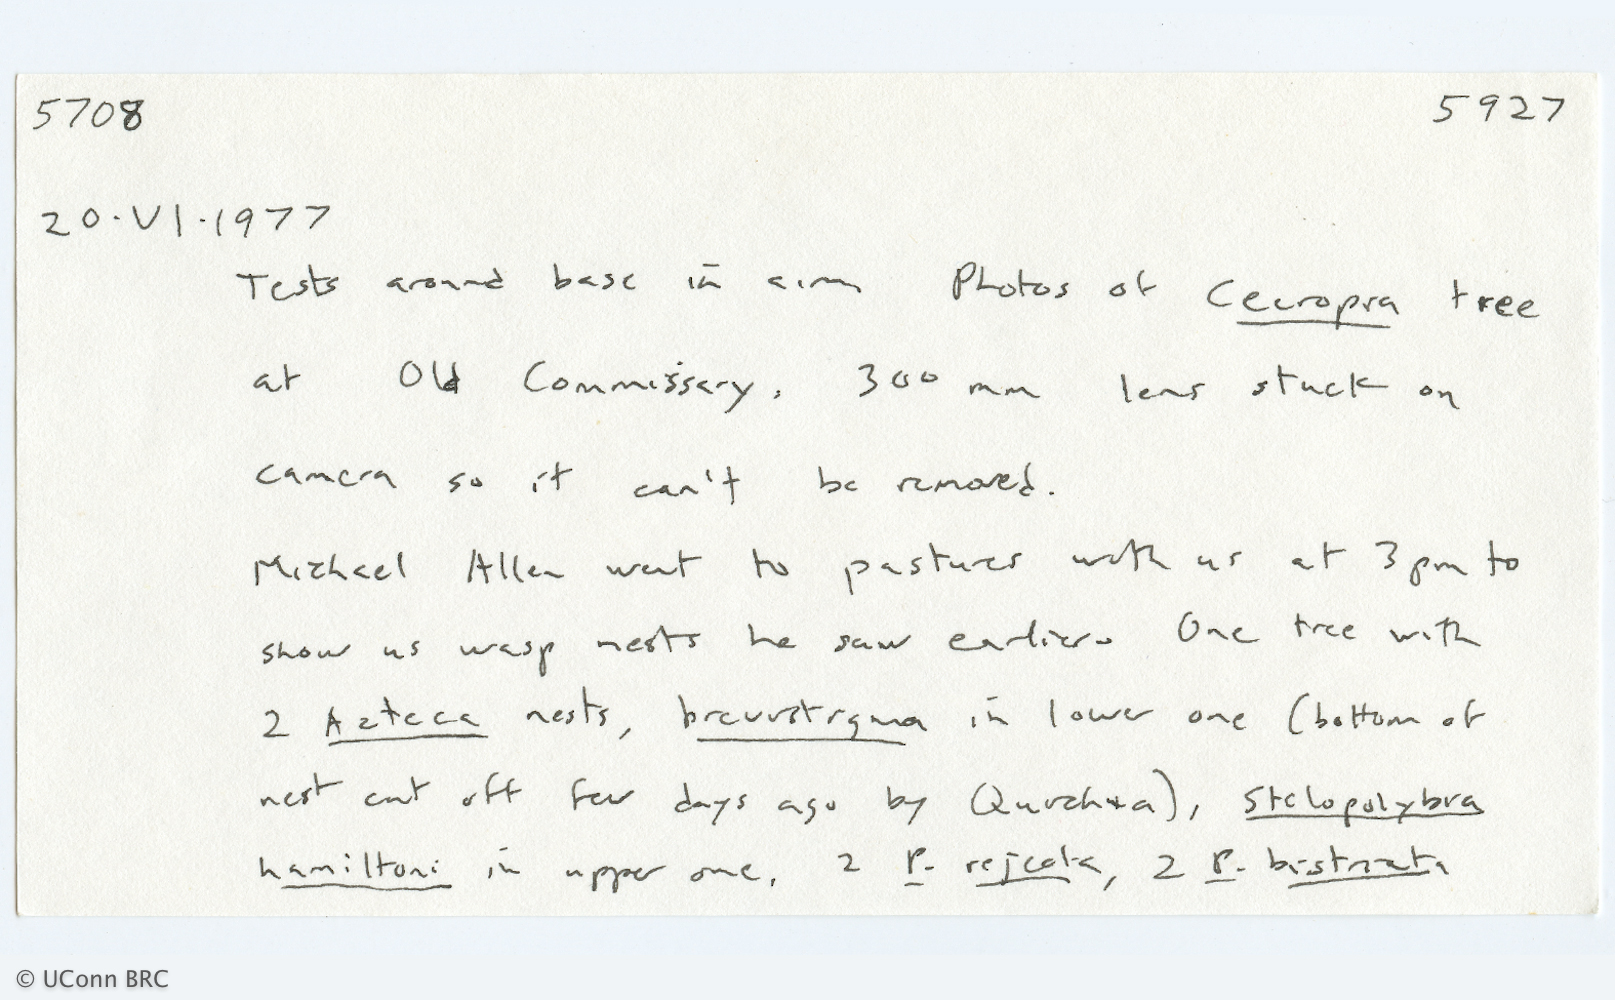 5708 5927
20·VI·1977
Tests around base in a.m. Photos of Cecropia tree
at Old Commissary. 300 mm lens stuck on
camera so it can't be removed.
Michael Allen went to pastures with us at 3 pm to
show us wasp nests he saw earlier. One tree with
2 Azteca nests, brevistigma in lower one (bottom of
nest cut off few days ago by), Stelopolybia
hamiltoni in upper one, 2 P. rejecta, 2 P. bistriata
© UConn BRC